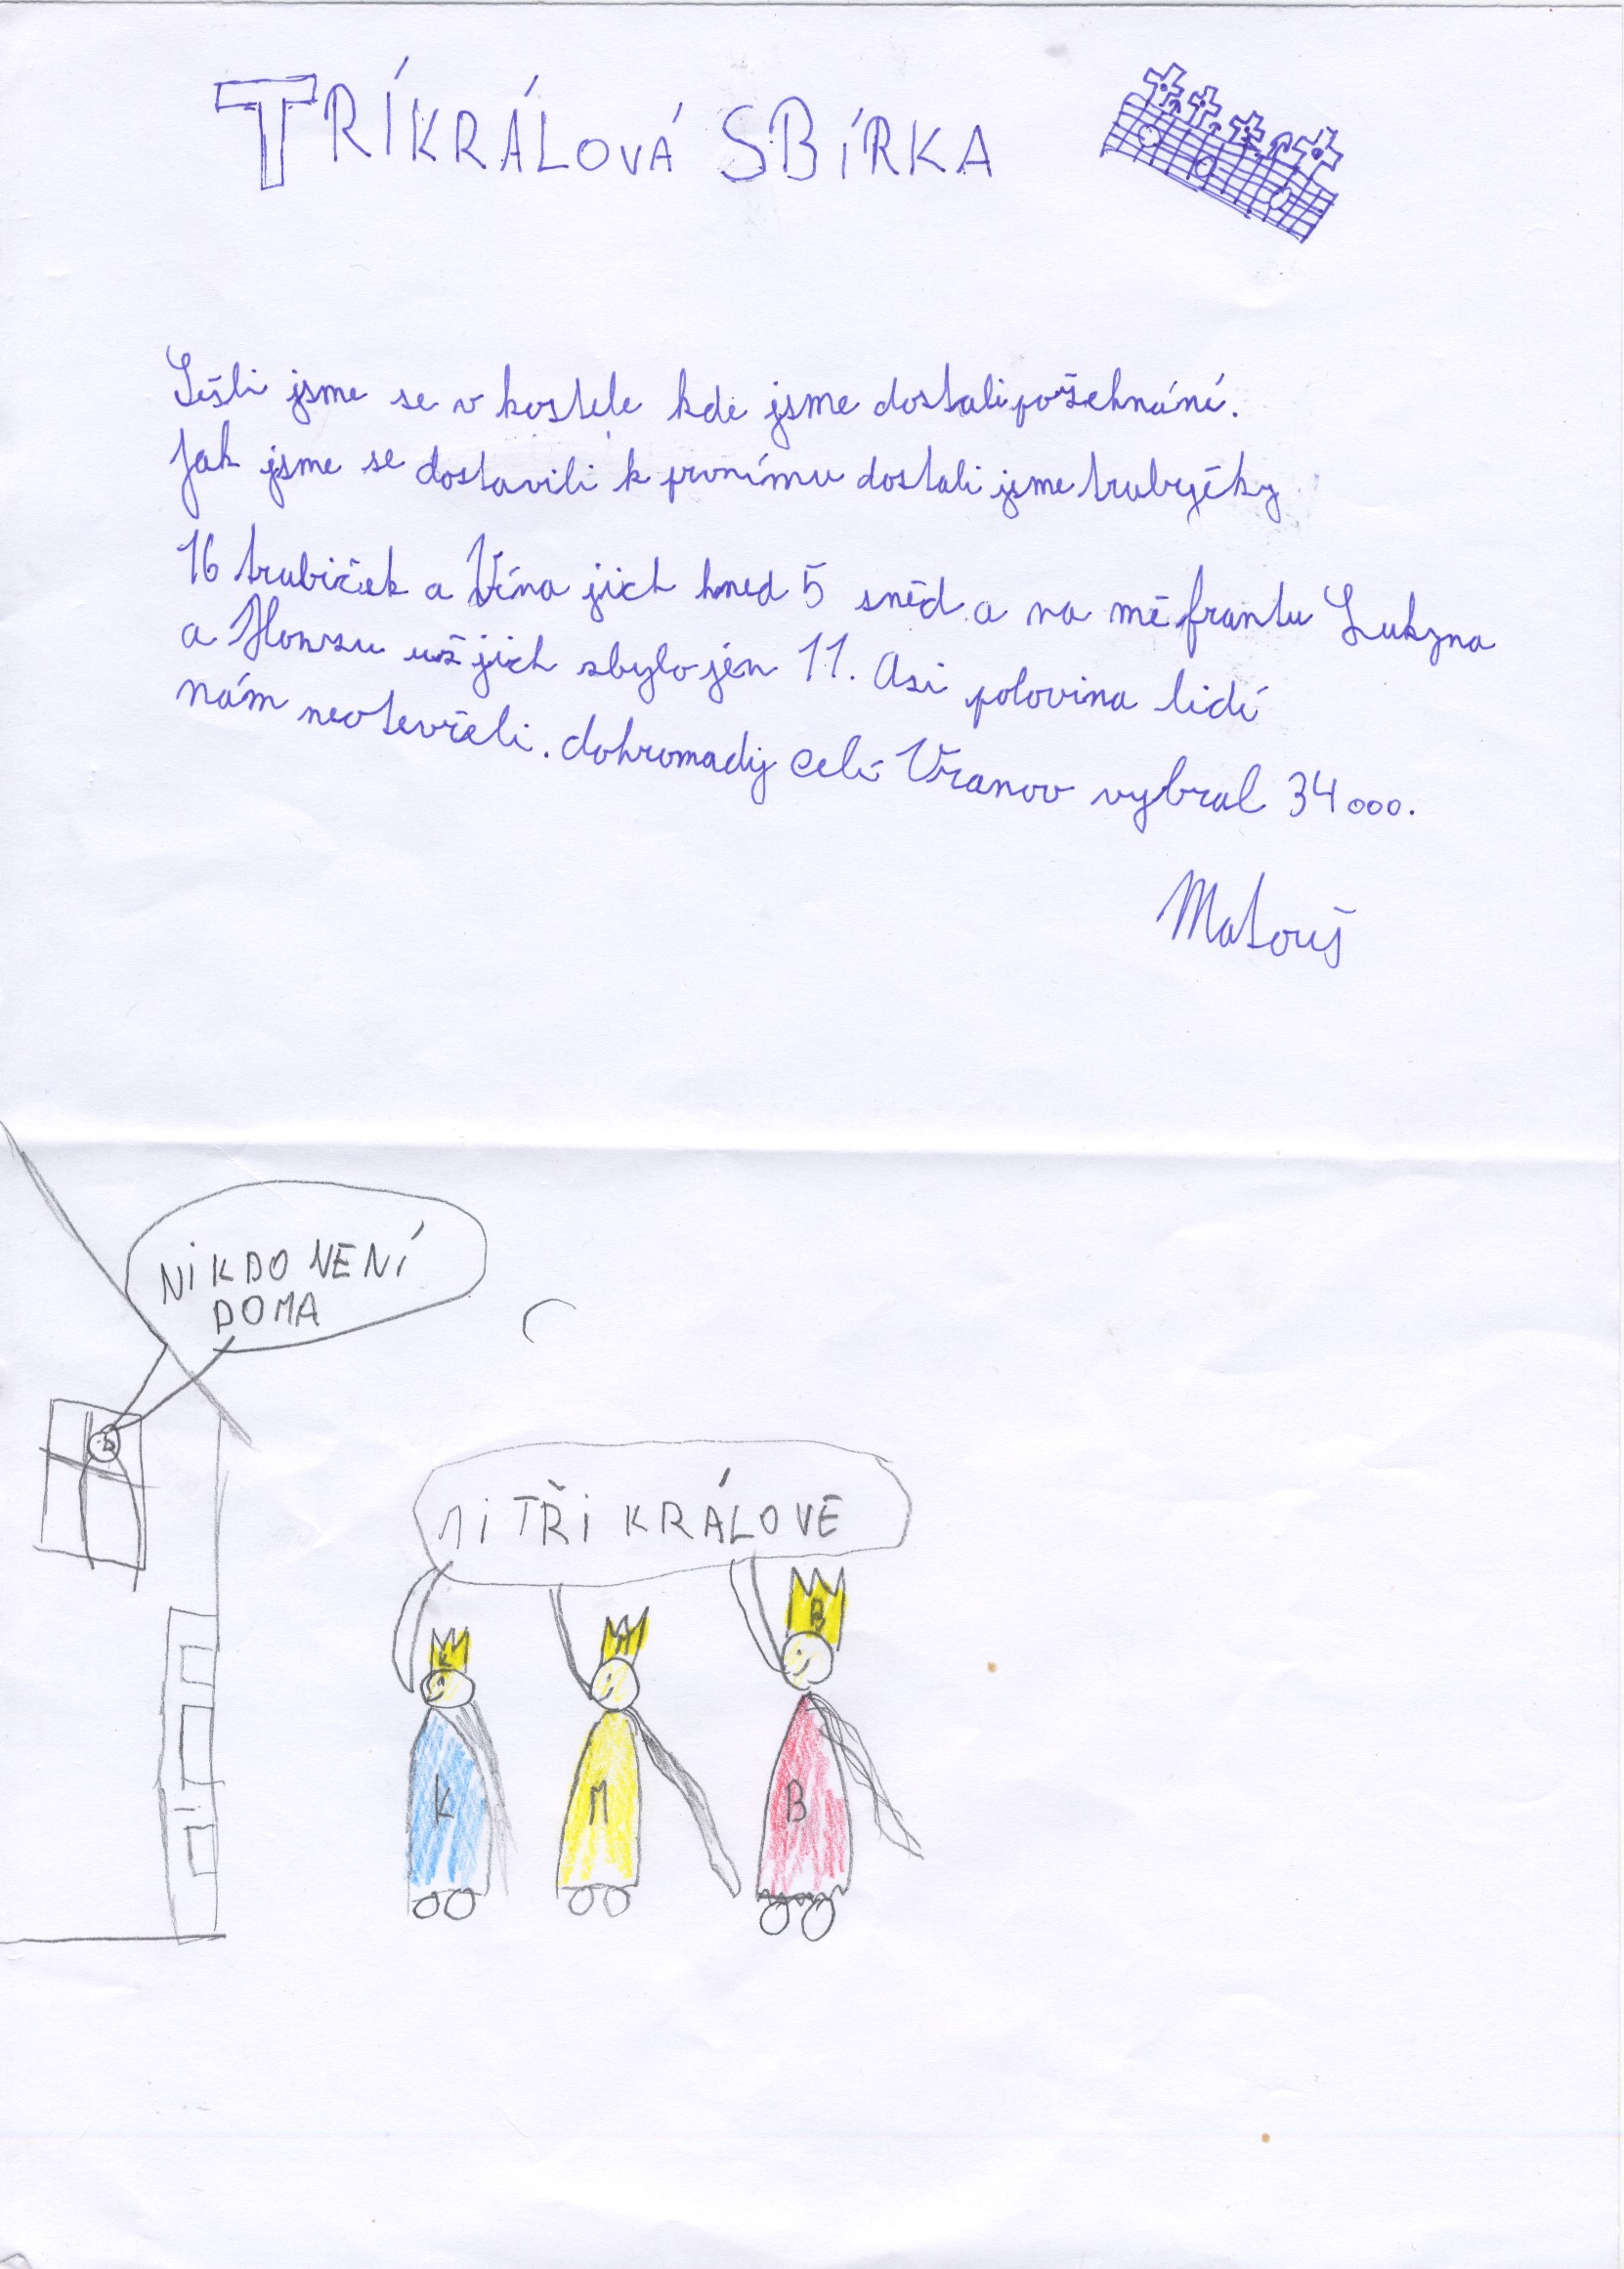 TRÍKRÁLOVÁ SBÍRKA
Sešli jsme se v kostele kde jsme dostali požehnání.
Jak jsme se dostavili k prvnímu dostali jsme trubyčky
16 trubiček a Vína jich hned 5 sněd a na mě frantu Lukyna
a Honzu už jich zbylo jen 11. Asi polovina lidí
nám neotevřeli. dohromady celí Vranov vybral 34000.
Matouš
NIKDO NENÍ
DOMA
MI TŘI KRÁLOVÉ
K M B
K M B